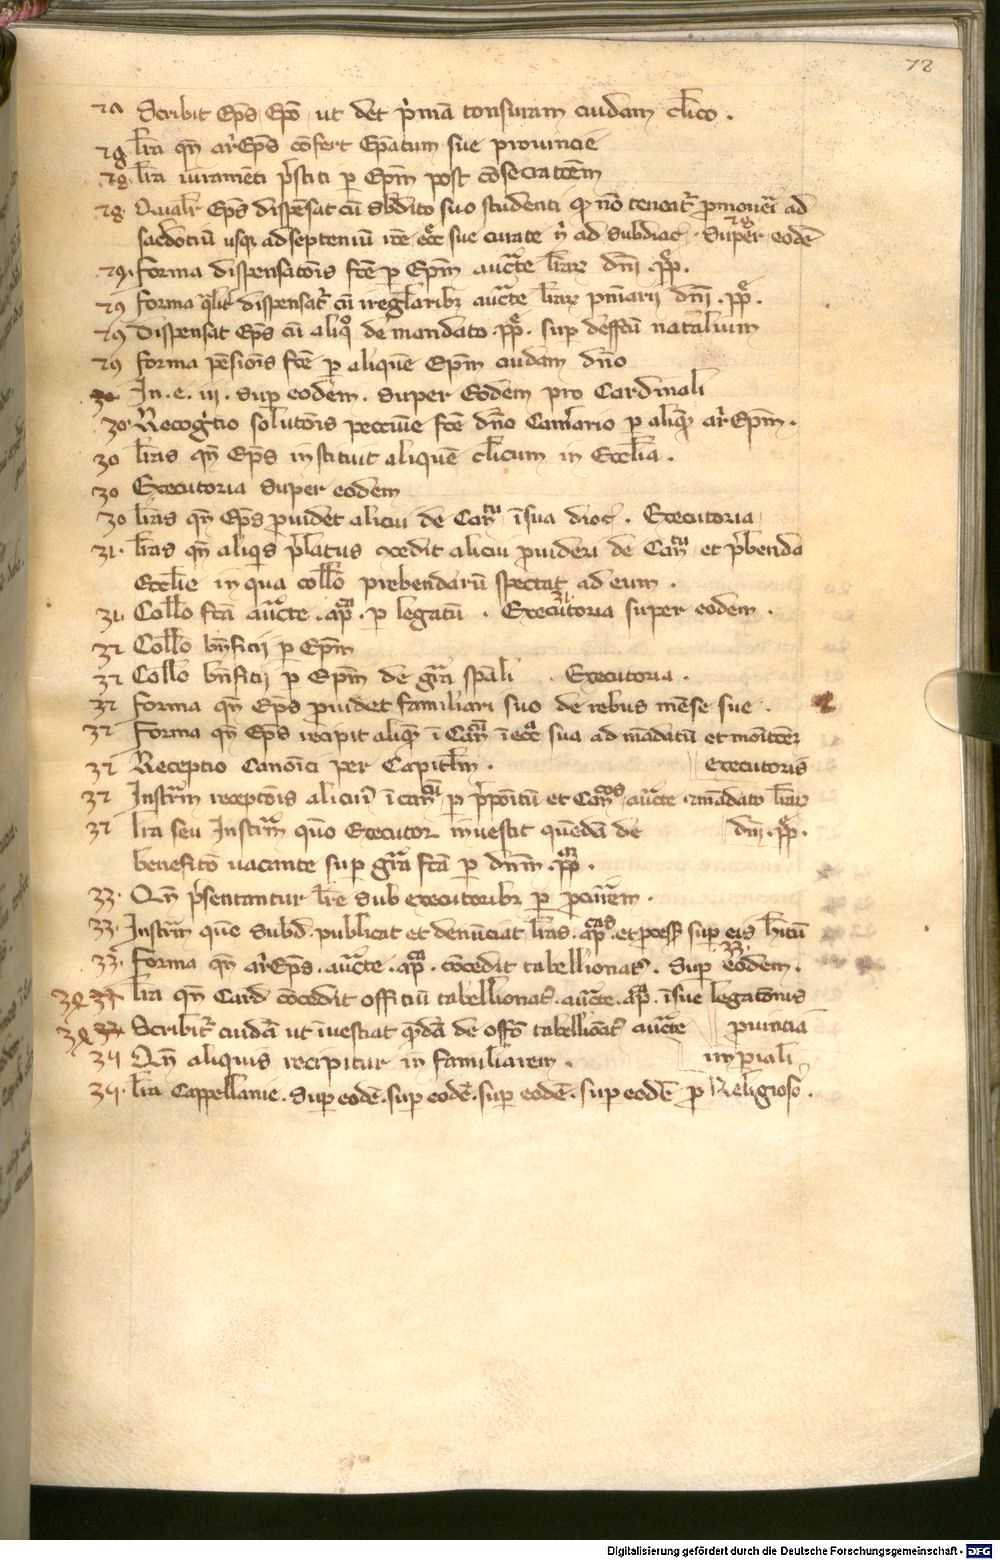 72
28 Scribit Ep̄s Ep̄o ut det p̓mā tonsuram cuidam cl̄ico .
28 lr̄a qn̄ arEp̄s cōfert Ep̄atum sue prouincie
28. lr̄a iuramēti p̓stiti p Ep̄m post cōsecratōem
28. Qualit̓ Ep̄s dispēsat cū sb̄dito suo studenti q̓ nō teneat̓ p̄mou̓i ad
sac̓dotiū usq̨ ad septeniū rōe ecc̄e sue curate n̓ ad subdiac̄ . Sup̓ 28 eodē
29. forma dispensatōis fc̄e p Ep̄m auct̄te lr̄aꝝ dn̄i .pp̄.
29 forma q̓lit̓ dispensat̓ cū ireg̓laribꝫ auct̄te lr̄aꝝ pn̄iarij dn̄i .pp̄.
29 Dispensat Ep̄s cū aliq̊ de mandato .pp̄. sup deffc̄ū natalium
29 forma pēsiōis fc̄e p aliquē Ep̄m cuidam dn̄o
30 In . e . iij . sup eodem . super Eodem pro Cardinali
30. Recog̓tio solutōis peccūie fc̄e dn̄o Cam̓ario p aliq̄ arEp̄m .
30 lr̄as qn̄ Ep̄s instituit aliquē cl̄icum in Eccl̄ia .
30 Executoria super eodem
30 lr̄as qn̄ Ep̄s p̄uidet alicui de Can̄tu ī sua dioc̄ . Executoria
31. lr̄as qn̄ aliq̓s p̓latus ꝯcedit alicui p̄uideri de Can̄tu et p̓benda
Eccl̄ie in qua coll̄o prebendarū spectat ad eum .
31. Coll̄o fc̄a auct̄te .ap̄ca. p legatū . Executoria 31. super eodem .
32 Coll̄o bn̄ficij p Ep̄m
32 Coll̄o bn̄ficij p Ep̄m de gr̄a sp̄ali . Executoria .
32 forma qn̄ Ep̄s p̄uidet familiari suo de rebus mēse sue .
32 Forma qn̄ Ep̄s recipit aliq̄ ī Can̄cū ī ecc̄a sua ad mādatū et monitōeꝫ
32 Receptio Canoīci per Capitl̄m . || executoris
32 Instr̄m receptōis alicui̓ ī can̄cū p p̓poitū et Can̄cos auct̄te ⁊ mādato lr̄aꝝ
32 lr̄a seu Instr̄m quō Executor inuestit quēdā de dn̄i .pp̄.
beneficō uacante sup gr̄a fc̄a p dn̄m .pp̄am.
33. Qn̄ p̓sentantur lr̄e sub executoribꝫ p p̄curem .
33. Instr̄m quō subd̄ . publicat et denūciat lr̄as .ap̄cas. et p̄cess̄ sup eis h̄itū
33. Forma qn̄ arEp̄s . auct̄te .ap̄ca. cōcedit tabellionat̄ . Sup 33. eodem .
34 lr̄a qn̄ Card̄ cōcedit officiū tabellionat̓ . auct̄te .ap̄ca. ī sue legatōnis
34 Scribit̓ cuidā ut īuestiat q̄dā de offō tabelliōat̓ auct̄te || p̄uīciā
34 Qn̄ aliquis recipitur in familiarem . || imp̄iali
34. lr̄a Cappellanie . Sup eodē . sup eodē . sup eodē . sup eodē p Religioso .
Digitalisierung gefördert durch die Deutsche Forschungsgemeinschaft - DFG